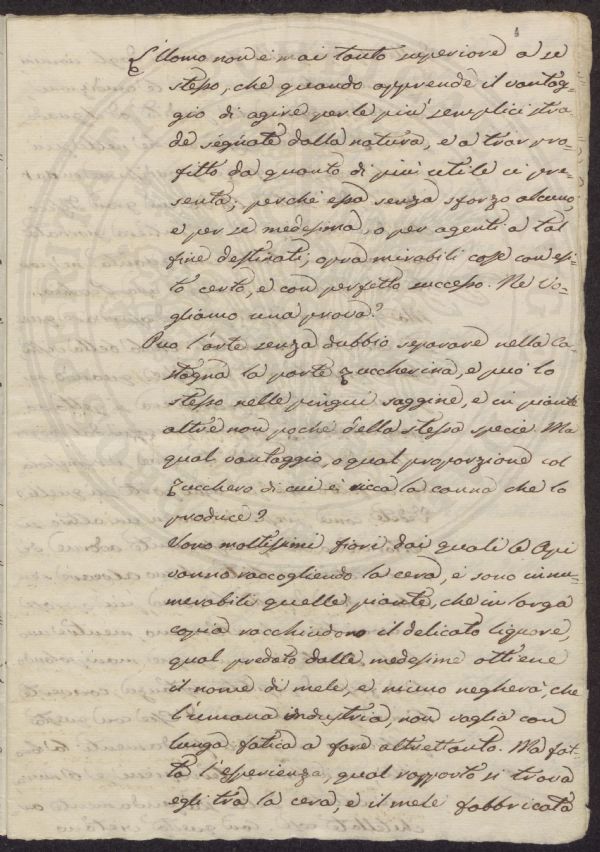 L'Uomo non è mai tanto superiore a se
stesso, che quando apprende il vantag-
gio di agire per le più semplici stra
de segnate dalla natura, e a trar pro-
fitto da quanto di più utile ci pre-
senta; perché essa senza sforzo alcuno,
e per se medesima, o per agenti a tal
fine destinati, opra mirabili cose con esi-
to certo, e con perfetto successo. Ne vo-
gliamo una prova?
Può l'arte senza dubbio separare nella Ca-
stagna la parte zuccherina, e può lo
stesso nelle pingui saggine, e in piante
altre non poche della stessa specie. Ma
qual vantaggio, o qual proporzione col
Zucchero di cui è ricca la canna che lo
produce?
Sono moltissimi fiori dai quali le Api
vanno raccogliendo la cera, e sono innu-
merabili quelle piante, che in larga
copia racchiudono il delicato liquore,
qual predato dalle medesime ottiene
il nome di mele, e niuno negherà, che
l'umana industria, non vaglia con
lunga fatica a fare altrettanto. Ma fat-
ta l'esperienza, qual rapporto si trova
egli tra la cera, e il mele fabbricata